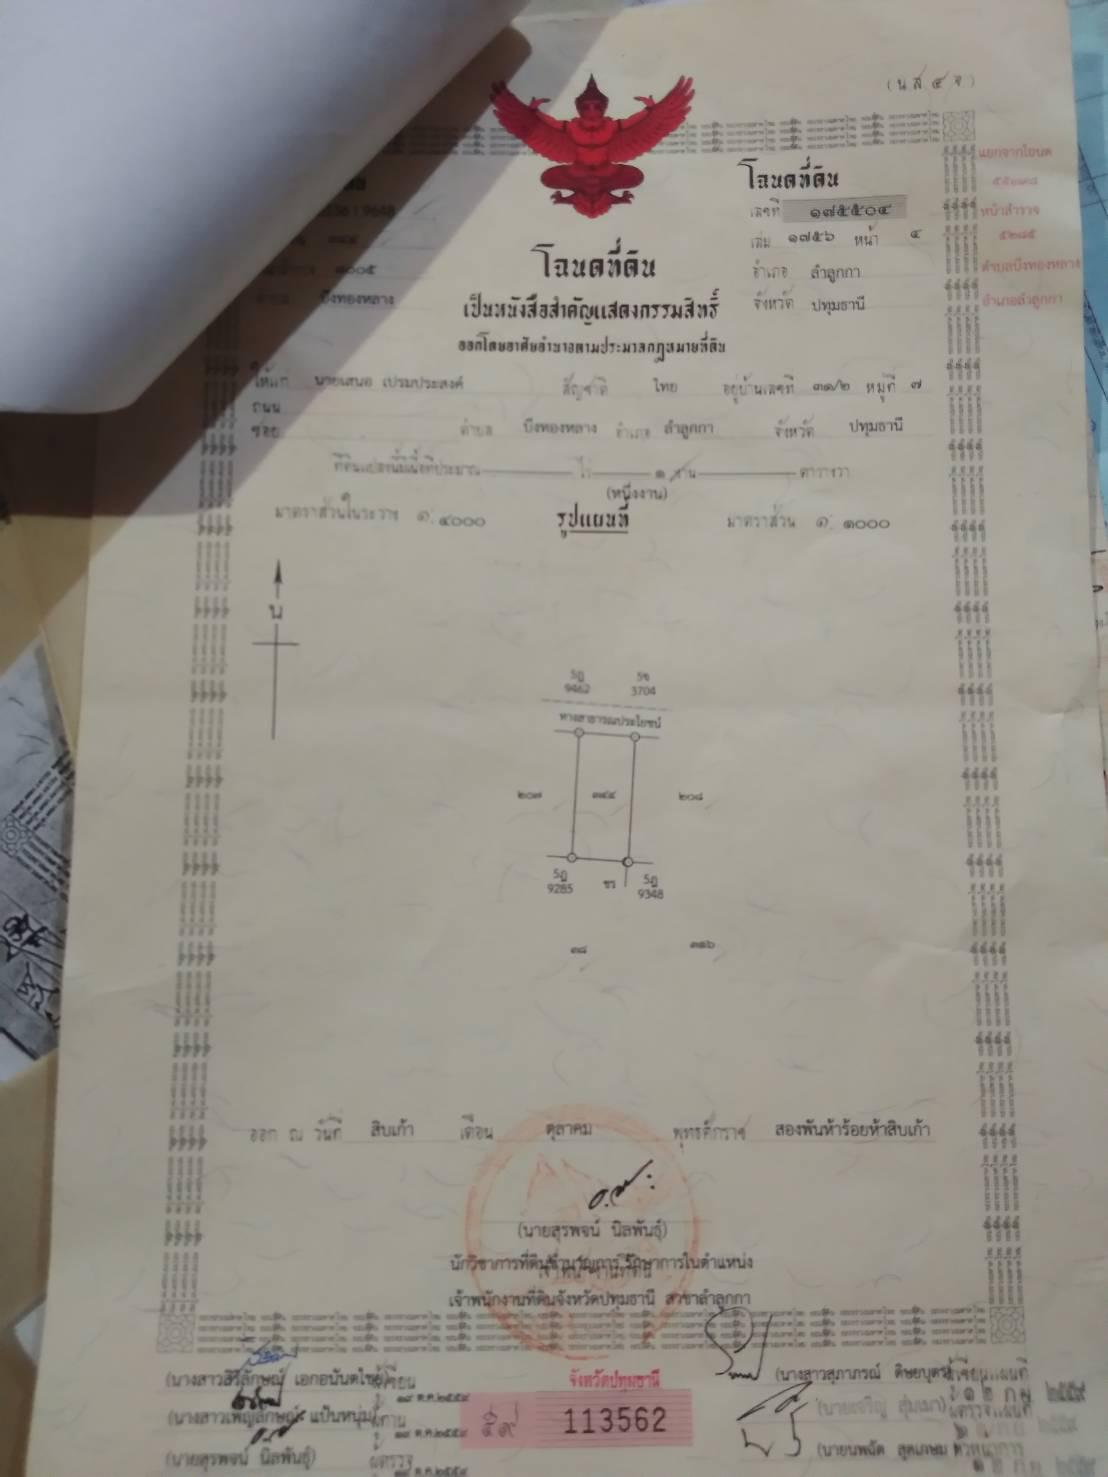 (น.ส.๔ จ)
แยกจากโฉนด
หน้าสำรวจ
๕๒๘๕
ตำบลบึงทองหลาง
อำเภอลำลูกกา
โฉนดที่ดิน
เลขที่ ๑๗๕๕๐๔
เล่ม ๑๗๕๖ หน้า ๔
อำเภอ ลำลูกกา
จังหวัด ปทุมธานี
ตำบล บึงทองหลาง
โฉนดที่ดิน
เป็นหนังสือสำคัญแสดงกรรมสิทธิ์
ออกโดยอาศัยอำนาจตามประมวลกฎหมายที่ดิน
ให้แก่ นายเสนอ เปรมประสงค์ สัญชาติ ไทย อยู่บ้านเลขที่ ๓๑/๒ หมู่ที่ ๗
ถนน
ซอย ตำบล บึงทองหลาง อำเภอ ลำลูกกา จังหวัด ปทุมธานี
ที่ดินแปลงนี้มีเนื้อที่ประมาณ ไร่ ๑ งาน ตารางวา
(หนึ่งงาน)
มาตราส่วนในระวาง ๑: ๔๐๐๐ รูปแผนที่ มาตราส่วน ๑: ๑๐๐๐
น
5ฎ 5ข
9462 3704
ทางสาธารณประโยชน์
๒๐๗ ๓๔๔ ๒๐๘
5ฎ ชว 5ฎ
9285 9348
๓๘ ๓๑๖
ออก ณ วันที่ สิบเก้า เดือน ตุลาคม พุทธศักราช สองพันห้าร้อยห้าสิบเก้า
(นายสุรพจน์ นิลพันธุ์)
นักวิชาการที่ดินชำนาญการ รักษาการในตำแหน่ง
เจ้าพนักงานที่ดิน
เจ้าพนักงานที่ดินจังหวัดปทุมธานี สาขาลำลูกกา
(นางสาวสิริลักษณ์ เอกอนันตไชย) ผู้เขียน
๑๙ ต.ค.๒๕๕๙
(นางสาวเพ็ญลักษณ์ แป้นหนุ่ม) ผู้ทาน
๑๙ ต.ค.๒๕๕๙
(นายสุรพจน์ นิลพันธุ์) ผู้ตรวจ
๑๙ ต.ค.๒๕๕๙
จังหวัดปทุมธานี
๕๙ 113562
(นางสาวสุภาภรณ์ ดิษยบุตร) ผู้เขียนแผนที่
๒๕๕๙
ผู้ตรวจแผนที่